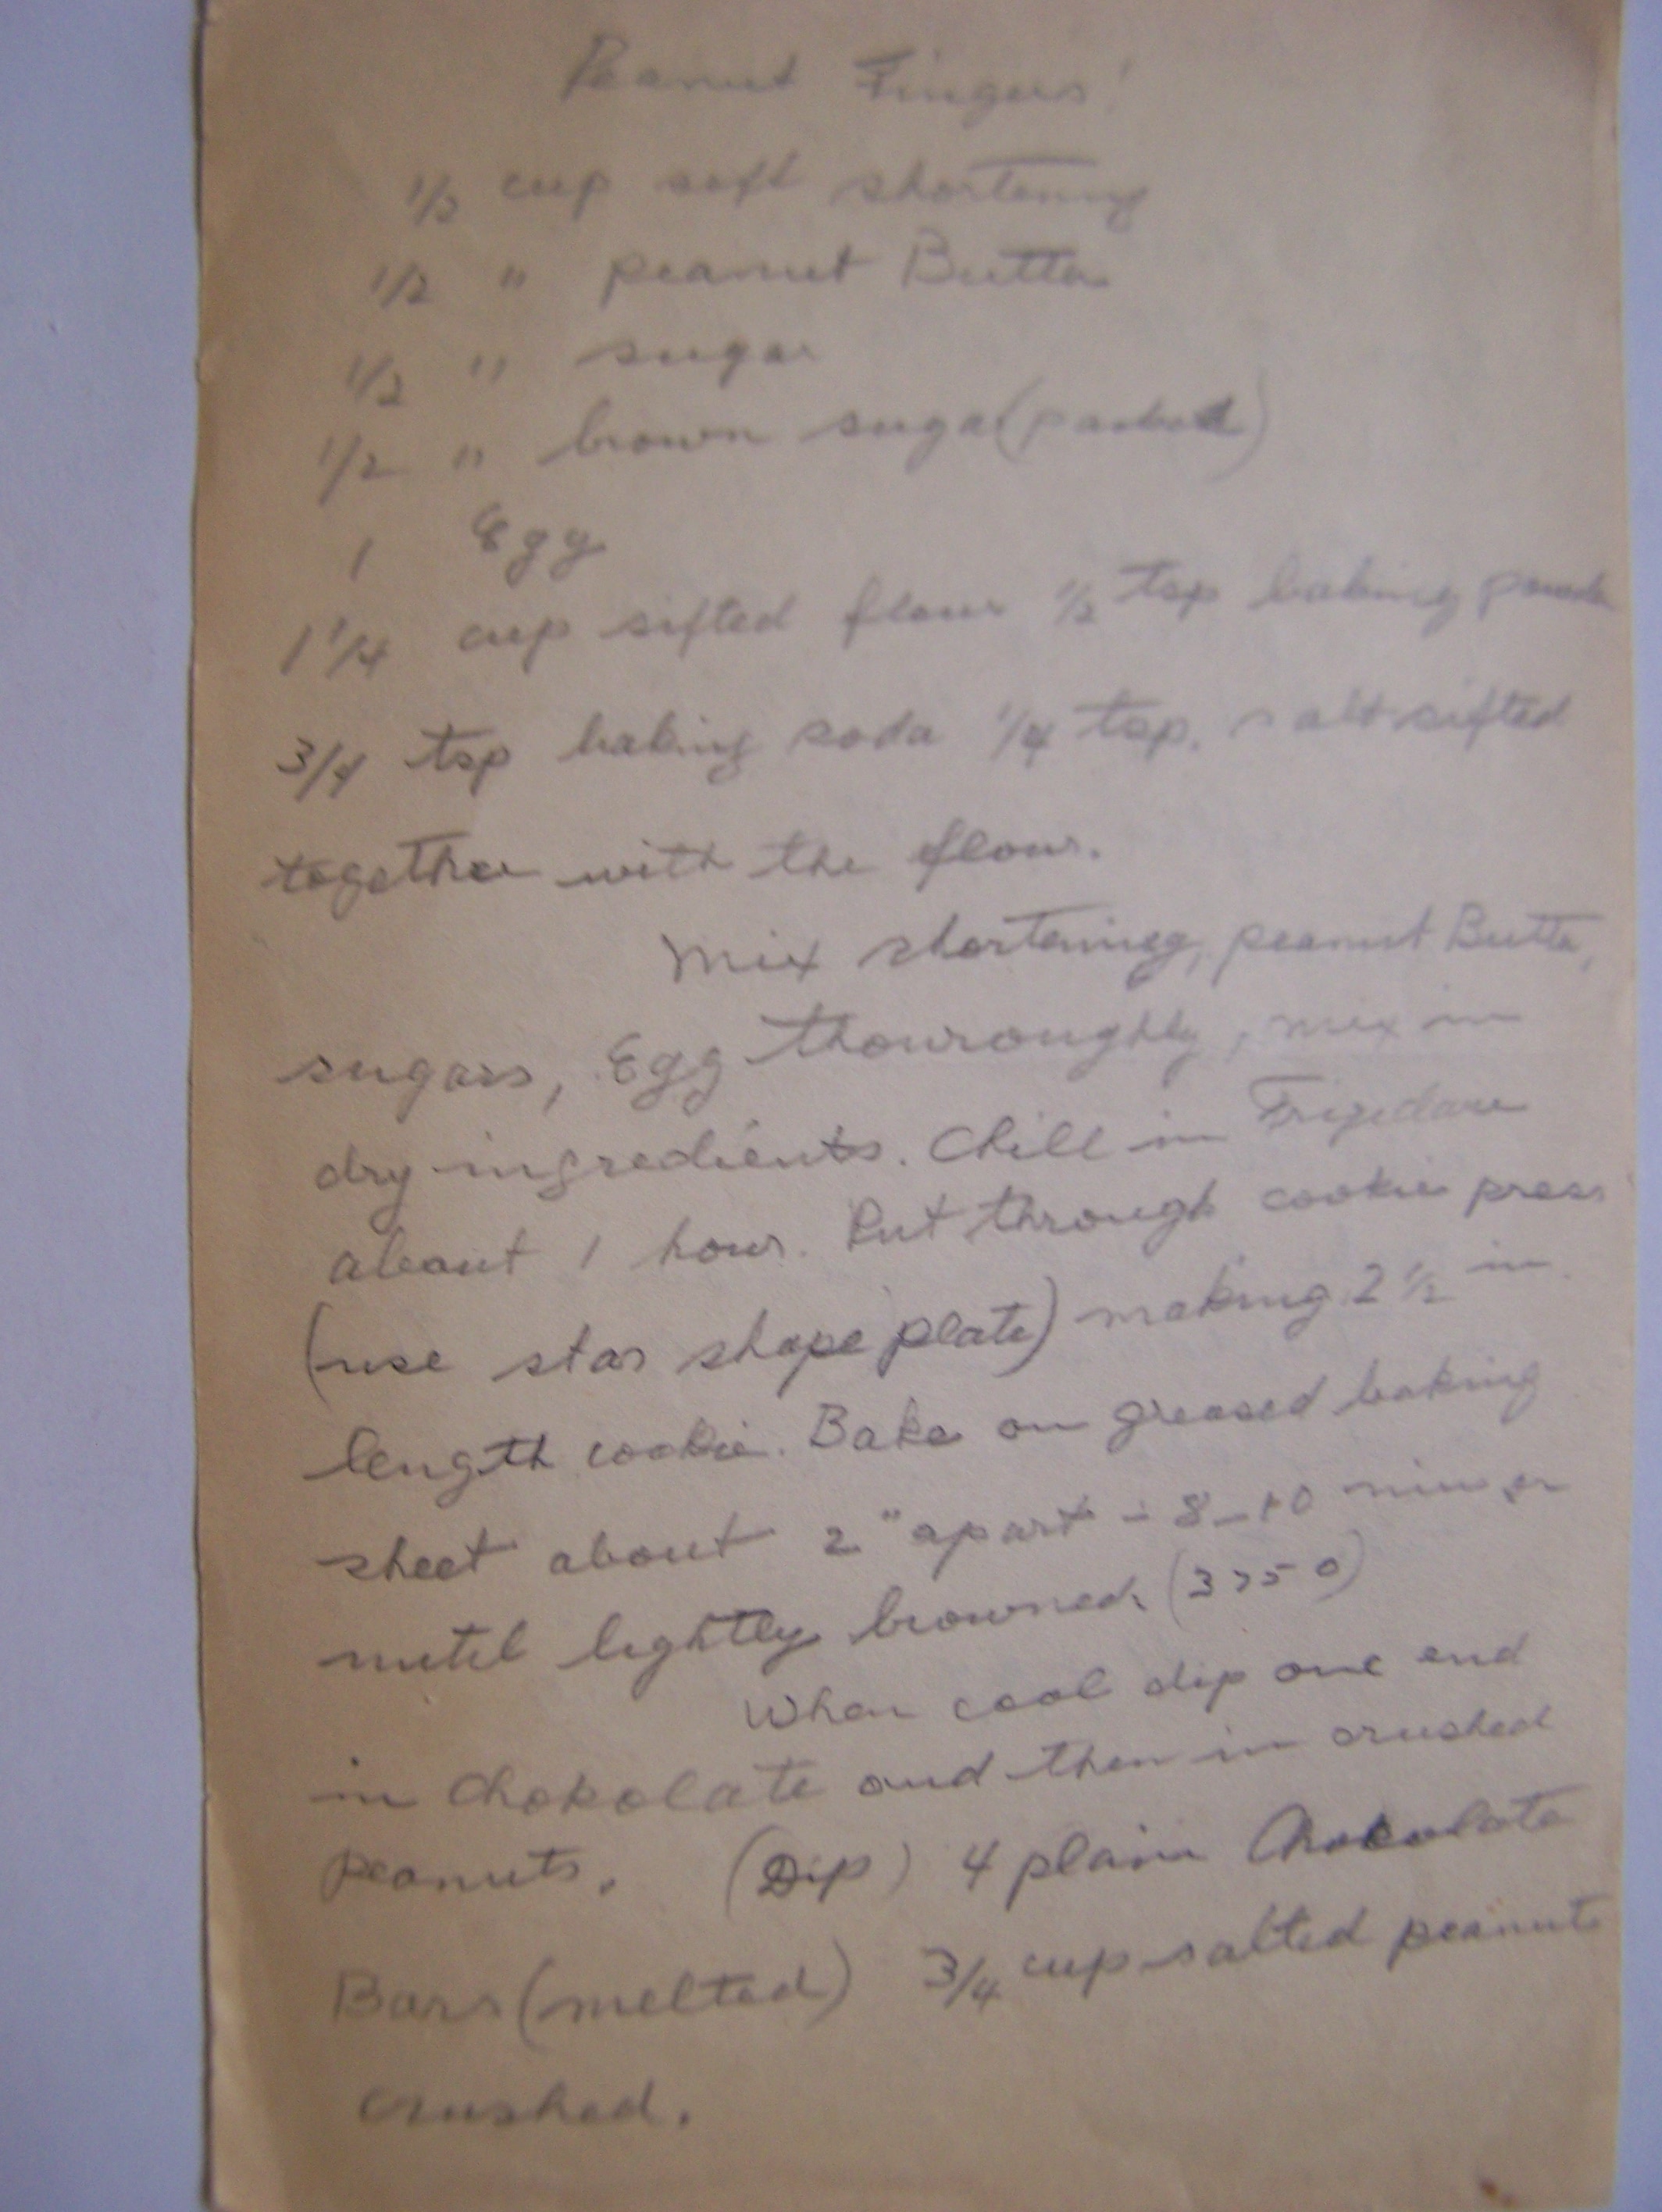 Peanut Fingers!
1/2 cup soft shortening
1/2 " peanut Butter
1/2 " sugar
1/2 " brown sugar (packed)
1 Egg
1 1/4 cup sifted flour 1/2 tsp baking powder
3/4 tsp baking soda 1/4 tsp. salt sifted
together with the flour.
Mix shortening, peanut Butter,
sugars, Egg thouroughly, mix in
dry ingredients. Chill in Frigedare
about 1 hour. Put through cookie press
(use star shape plate) making 2 1/2 in.
length cookie. Bake on greased baking
sheet about 2" apart - 8-10 min or
until lightly browned. (375 0)
When cool dip one end
in Chokolate and then in crushed
peanuts. (Dip) 4 plain Chokolate
Bars (melted) 3/4 cup salted peanuts
crushed.